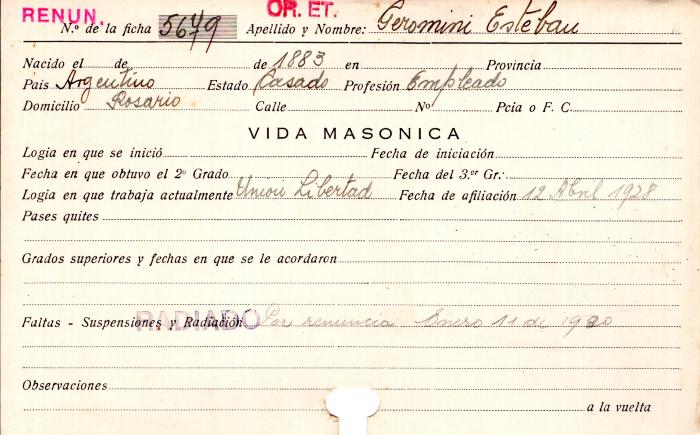 RENUN. OR. ET.
N.º de la ficha 5649 Apellido y Nombre: Geromini Estebau
Nacido el de de 1883 en Provincia
Pais Argentino Estado Casado Profesión Empleado
Domicilio Rosario Calle Nº Pcia o F. C.
VIDA MASONICA
Logia en que se inició Fecha de iniciación
Fecha en que obtuvo el 2º Grado Fecha del 3.er Gr.:
Logia en que trabaja actualmente Union Libertad Fecha de afiliación 12 Abril 1928
Pases quites
Grados superiores y fechas en que se le acordaron
Faltas - Suspensiones y Radiación RADIADO Por renuncia Enero 11 de
Observaciones
a la vuelta